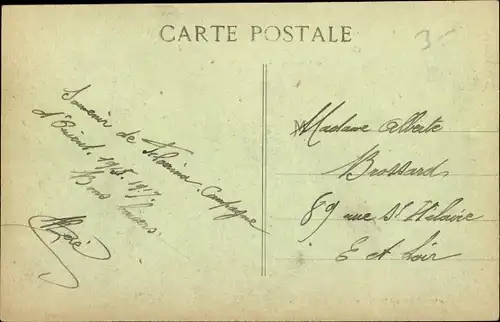 CARTE POSTALE
35
Souvenir de Florina Campagne
d'Orient. 1915. 1917.
Bons baisers
Madame Alberte
Brossard
89 rue St Hilaire
E et Loir